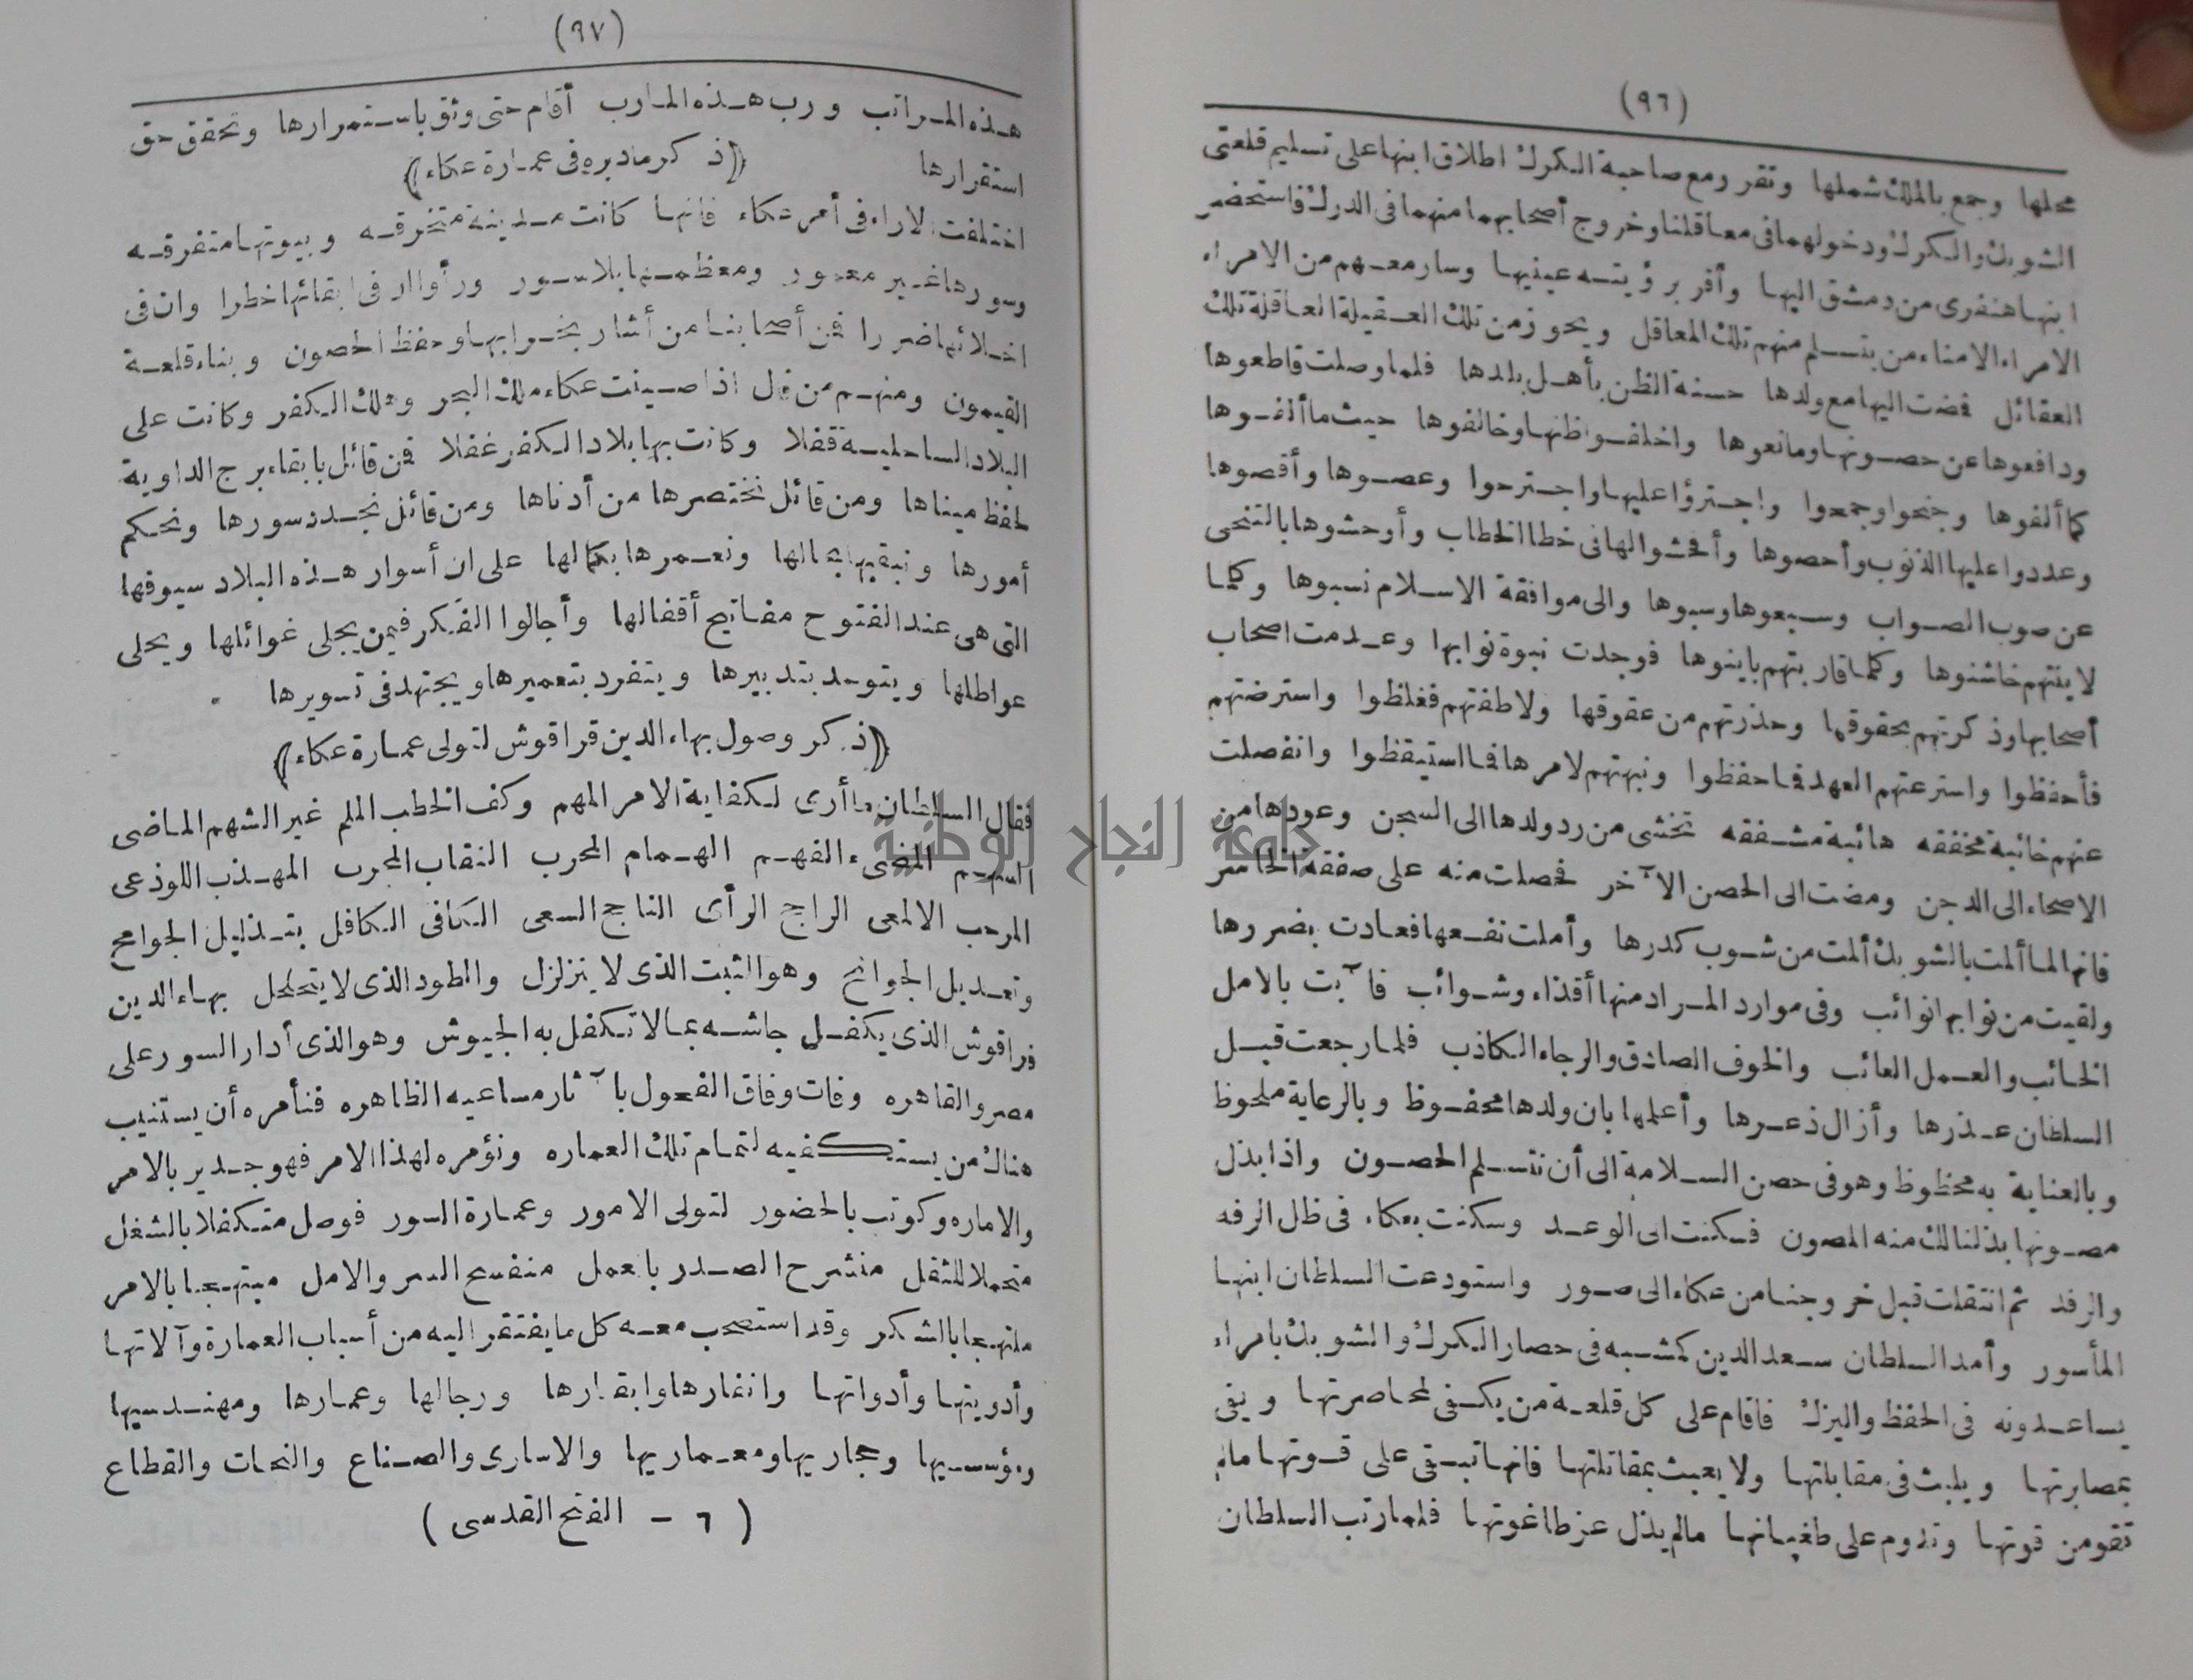 (٩٦)
محلها وجمع بالملك شملها وتقرر مع صاحبة الكرك اطلاق ابنها على تسليم قلعتى
الشوبك والكرك ودخولهما فى معاقلنا وخروج أصحابهما منهما فى الدرك فاستحضر
ابنها هنفرى من دمشق اليها وأقر برؤيته عينيها وسار معهم من الامراء
الامراء الامناء من يتسلم منهم تلك المعاقل ويحوز من تلك العقيلة العاقلة تلك
العقائل فمضت اليها مع ولدها حسنة الظن بأهل بلدها فلما وصلت قاطعوها
ودافعوها عن حصونها ومانعوها واخلفوا ظنها وخالفوها حيث ما ألفوها
كما ألفوها وجنحوا وجمعوا واجترؤا عليها واجترحوا وعصوها وأقصوها
وعددوا عليها الذنوب وأحصوها وأفحشوا لها فى خطا الخطاب وأوحشوها بالتنحى
عن صوب الصواب وسبعوها وسبوها والى موافقة الاسلام نسبوها وكلما
لاينتهم خاشنوها وكلما قاربتهم باينوها فوجدت نبوة نوابها وعدمت اصحاب
أصحابها وذكرتهم بحقوقها وحذرتهم من عقوقها ولاطفتهم فغلظوا واسترضتهم
فأحفظوا واسترعتهم العهد فما حفظوا ونبهتهم لامرها فما استيقظوا وانفصلت
عنهم خائبة مخفقه هائبة مشفقه تخشى من رد ولدها الى السجن وعودها من
الاصحاء الى الدجن ومضت الى الحصن الآخر فحصلت منه على صفقة الخاسر
فانها لما ألمت بالشوبك ألمت من شوب كدرها وأملت نفعها فعادت بضررها
ولقيت من نوابها نوائب وفى موارد المراد منها أقذاء وشوائب فآبت بالامل
الخائب والعمل العائب والخوف الصادق والرجاء الكاذب فلما رجعت قبل
السلطان عذرها وأزال ذعرها وأعلمها بان ولدها محفوظ وبالرعاية ملحوظ
وبالعناية به محظوظ وهو فى حصن السلامة الى أن نتسلم الحصون واذا بذل
مصونها بذلنا لك منه المصون فسكنت الى الوعد وسكنت بعكاء فى ظل الرفه
والرفد ثم انتقلت قبل خروجنا من عكاء الى صور واستودعت السلطان ابنها
المأسور وأمد السلطان سعد الدين كمشبه فى حصار الكرك والشوبك بامراء
يساعدونه فى الحفظ واليزك فاقام على كل قلعة من يكفى لمحاصرتها ويفى
بمصابرتها ويلبث فى مقابلتها ولا يعبث بمقاتلتها فانها تبقى على قوتها مالم
تقو من قوتها وتدوم على طغيانها مالم يذل عز طاغوتها فلما رتب السلطان
(٩٧)
هذه المراتب ورب هذه المارب أقام حتى وثق باستمرارها وتحقق حق
استقرارها
(ذكر مادبره فى عمارة عكاء)
اختلفت الاراء فى أمر عكاء فانها كانت مدينة متخرقه وبيوتها متفرقه
وسورها غير معمور ومعظمها بلا سور ورأوا ان فى ابقائها خطرا وان فى
اخلائها ضررا فمن أصحابنا من أشار بخرابها وحفظ الحصون وبناء قلعة
القيمون ومنهم من قال اذا صينت عكاء ملك البحر وهلك الكفر وكانت على
البلاد الساحلية قفلا وكانت بها بلاد الكفر غفلا فمن قائل بابقاء برج الداوية
لحفظ ميناها ومن قائل نختصرها من أدناها ومن قائل نجدد سورها ونحكم
أمورها ونبقيها بحالها ونعمرها بكمالها على ان أسوار هذه البلاد سيوفها
التى هى عند الفتوح مفاتيح أقفالها وأجالوا الفكر فيمن يجلى غوائلها ويحلى
عواطلها ويتوحد بتدبيرها ويتفرد بتعميرها ويجتهد فى تسويرها
(ذكر وصول بهاء الدين قراقوش لتولى عمارة عكاء)
فقال السلطان ما أرى لكفاية الامر المهم وكف الخطب الملم غير الشهم الماضى
السهم المضىء الفهم الهمام المحرب النقاب المجرب المهذب اللوذعى
المرحب الالمعى الراجح الرأى الناجح السعى الكافى الكافل بتذليل الجوامح
وتعديل الجوانح وهو الثبت الذى لا يتزلزل والطود الذى لا يتحلحل بهاء الدين
قراقوش الذى يكفل جاشه بما لا تكفل به الجيوش وهو الذى أدار السور على
مصر والقاهره وفات وفاق الفحول بآثار مساعيه الظاهره فنأمره أن يستنيب
هناك من يستكفيه لتمام تلك العماره ونؤمره لهذا الامر فهو جدير بالامر
والاماره وكوتب بالحضور لتولى الامور وعمارة السور فوصل متكفلا بالشغل
متحملا للثقل منشرح الصدر بالعمل منفسح السر والامل مبتهجا بالامر
ملتهجا بالشكر وقد استصحب معه كل ما يفتقر اليه من أسباب العمارة وآلاتها
وأدويتها وأدواتها وانفارها وابقارها ورجالها وعمارها ومهندسيها
ومؤسسيها وحجاريها ومعماريها والاسارى والصناع والنحات والقطاع
(٦ - الفتح القدسى)
جامعة النجاح الوطنية